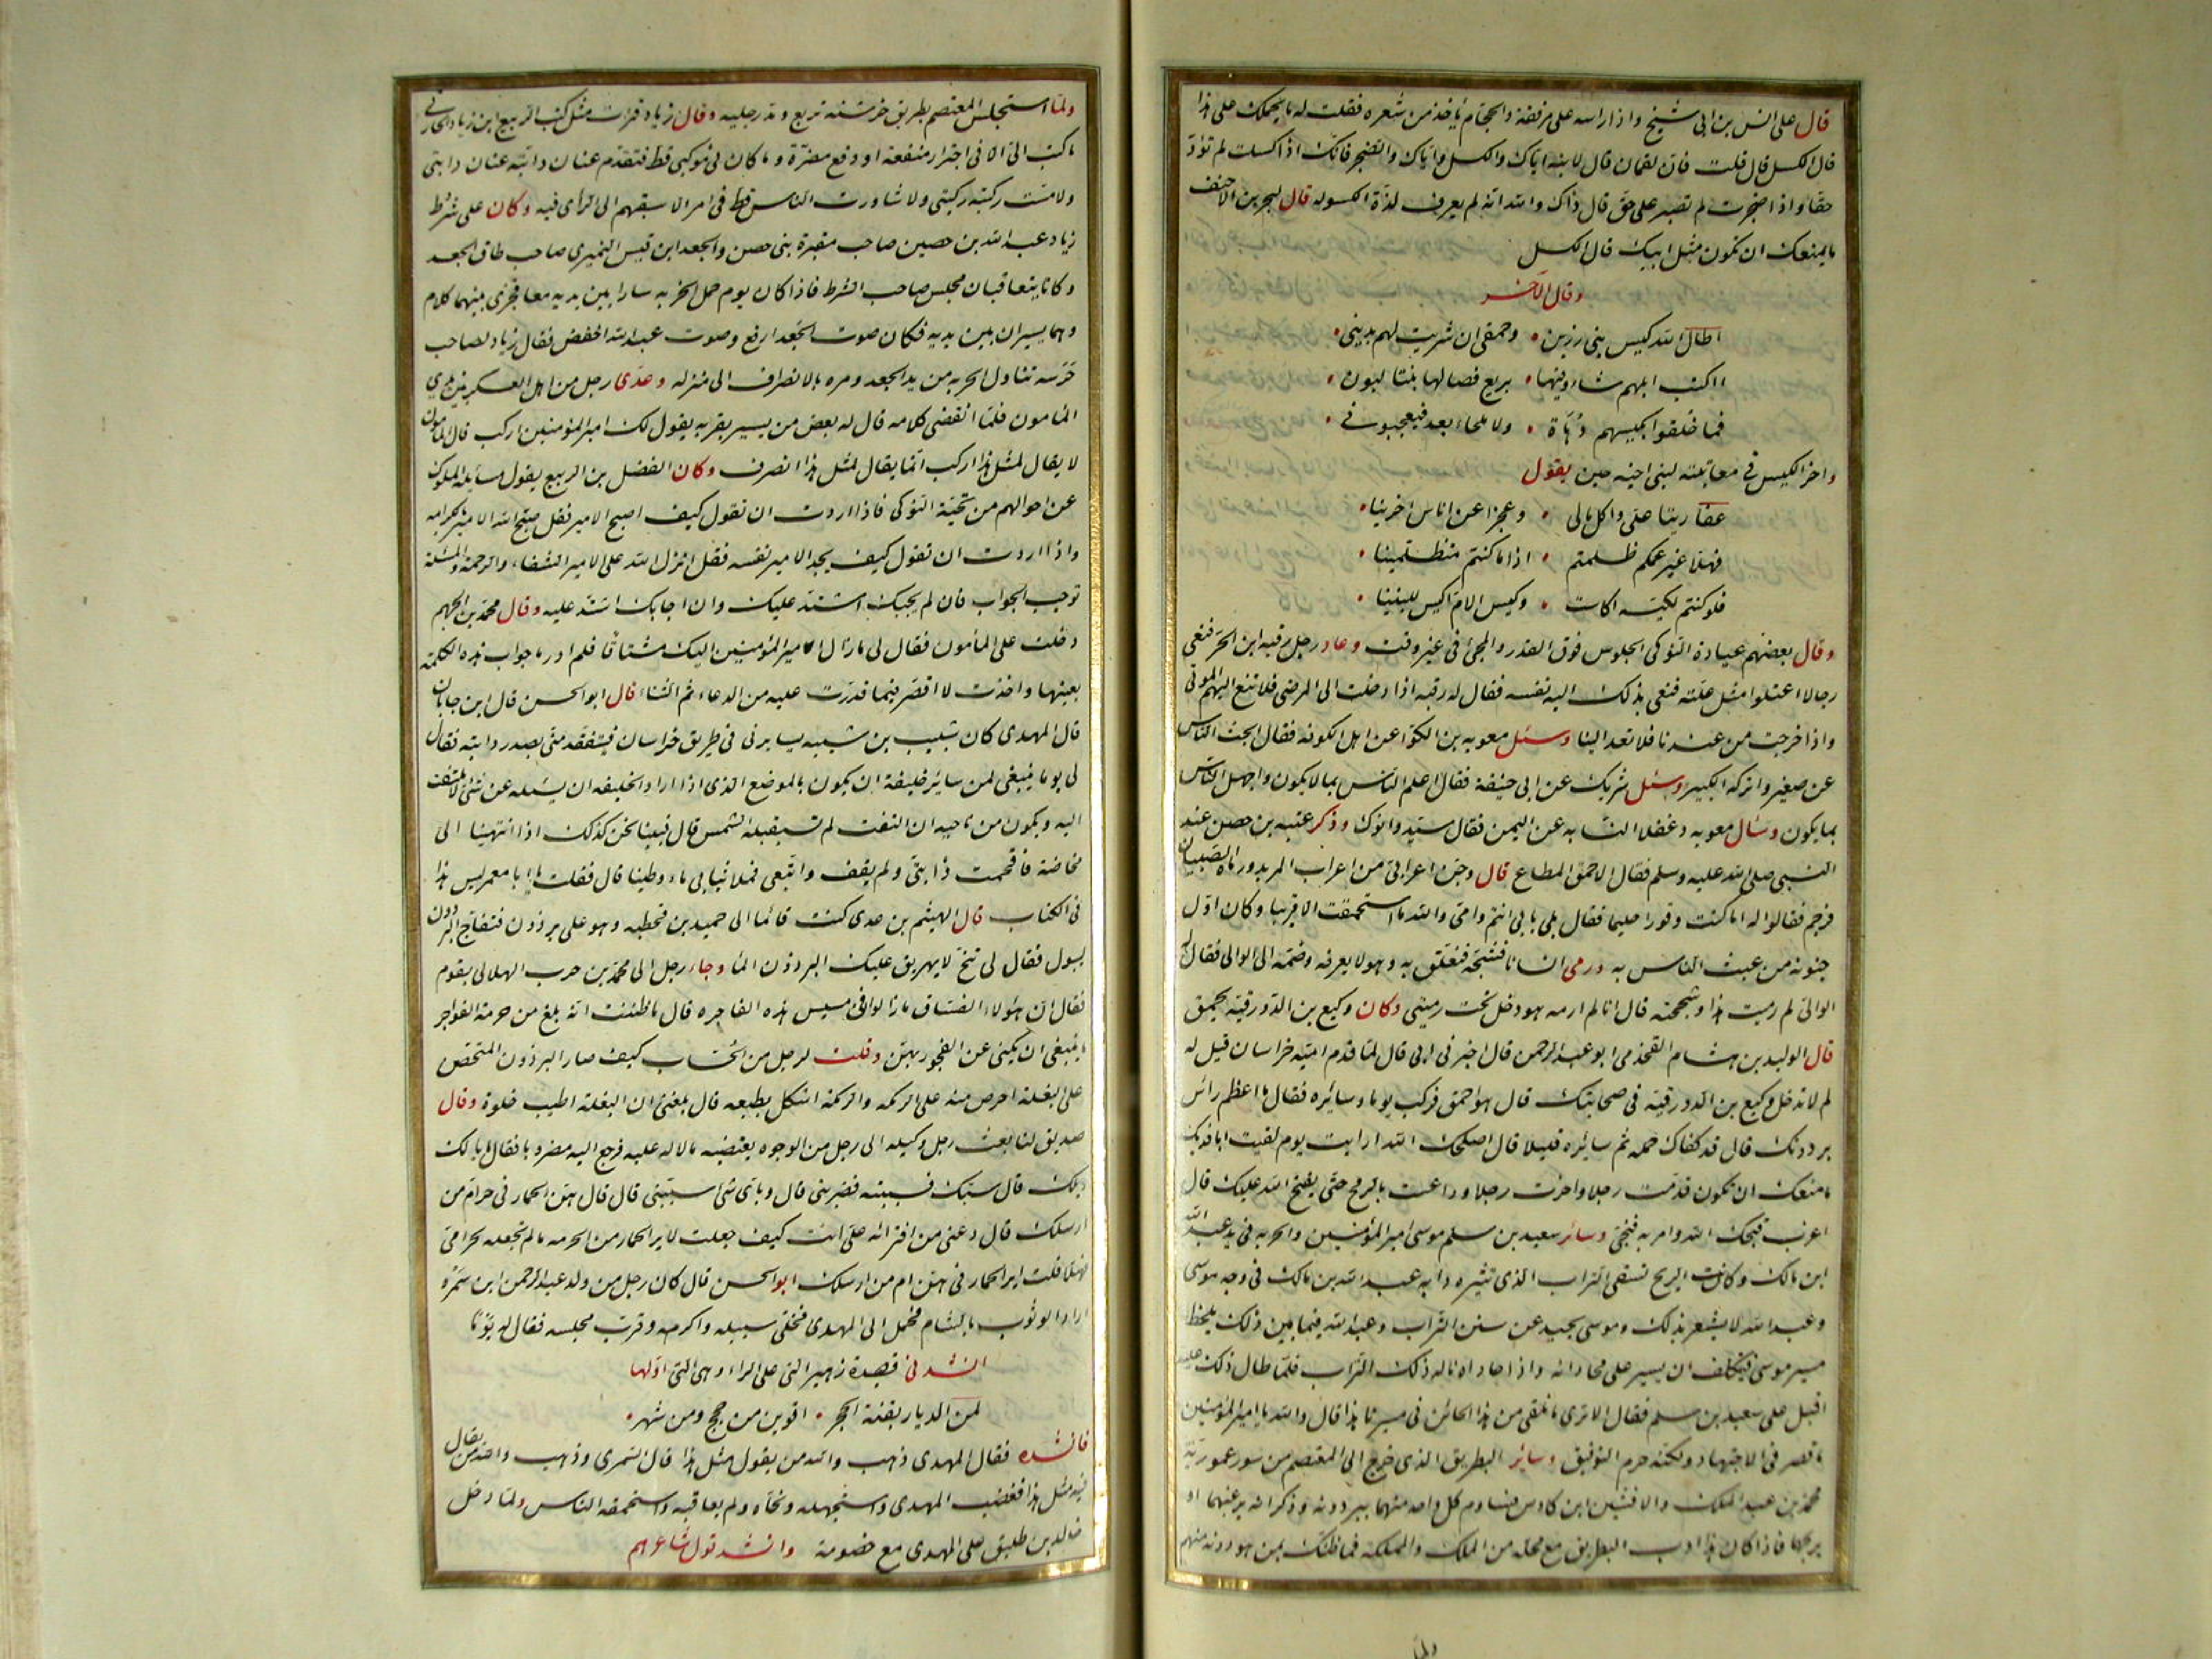 قال على انس بن ابى شيخ واذا راسه على مرفقة والحجّام ياخذ من شعره فقلت له ما يحملك على هذا
قال الكسل قال قلت فان لقمان قال لابنه اياك والكسل واياك والضجر فانك اذا كسلت لم تؤدّ
حقا واذا ضجرت لم تصبر على حق قال ذاك والله انه لم يعرف لذة الكسوله قال لبحر بن الاحنف
ما يمنعك ان تكون مثل ابيك قال الكسل
وقال الآخر
اطال الله كيس بنى رزين • وحمقى ان شريت لهم بدينى •
ااكتب ابلهم شاء وفيها • بريع فصالها بنتا لبون •
فما خلقوا بكيسهم دُهاة • ولا ملحاء بعد فيعجبونى •
واخز الكيس فى معاتبته لبنى اخيه حين يقول
عفاريتا على واكل مالى • وعجزا عن اناس اخرينا •
فهلا غير عمكم ظلمتم • اذا ما كنتم متظلمينا •
فلو كنتم لكيسه اكاست • وكيس الام اكيس للبنينا •
وقال بعضهم عيادة النوكى الجلوس فوق القدر والمجئ فى غير وقت وعاد رجل رقبه ابن الحرّ فنعى
رجالا اعتلوا مثل علته فنعى بذلك اليه نفسه فقال له رقبه اذا دخلت الى المرضى فلا تنع اليهم الموتى
واذا خرجت من عندنا فلا تعد الينا وسئل معويه بن الكوّا عن اهل الكوفه فقال ابحث الناس
عن صغير واتركه لكبير وسئل شريك عن ابى حنيفة فقال اعلم الناس بما لا يكون واجهل الناس
بما يكون وسأل معويه دغفلا النسّابه عن اليمن فقال سيّد وانوك وذكر عتبه بن حصن عند
النبى صلى الله عليه وسلم فقال الاحمق المطاع قال وجنّ اعرابى من اعراب المربد ورماه الصبيان
فرجم فقالوا له اما كنت وقورا حليما فقال بلى بابى انتم وامى والله ما استحمقت الا قريبا وكان اوّل
جنونه من عبث الناس به ورمى انسانا فشجّه فتعلق به وهو لا يعرفه وضمّه الى الوالى فقال له
الوالى لم رميت هذا وشججته قال انا لم ارمه هو دخل تحت رميتى وكان وكيع بن الدورقيه يحمق
قال الوليد بن هشام القحذمى ابو عبد الرحمن قال اخبرنى ابى قال لما قدم اميّه خراسان قيل له
لم لا تدخل وكيع بن الدورقيه فى صحابتك قال هو احمق فركب يوما وسائره فقال ما اعظم رأس
برذونك قال قد كفاك حمله ثم سائره قليلا قال اصلحك الله ارايت يوم لقيت ابا فديك
ما منعك ان تكون قدمت رجلا واخرت رجلا وداعست بالرمح حتى يفتح الله عليك قال
اعزب قبحك الله وامر به فنحى وسائر سعيد بن سلم موسى امير المؤمنين والحربه فى يد عبد الله
ابن مالك وكانت الريح تسفى التراب الذى تثيره دابه عبد الله بن مالك فى وجه موسى
وعبد الله لا يشعر بذلك وموسى يحيد عن سنن التراب وعبد الله فيما بين ذلك يلحظ
مسير موسى فيتكلف ان يسير على محاذاته واذا حاذاه ناله ذلك التراب فلما طال ذلك عليه
اقبل على سعيد بن سلم فقال الا ترى ما نلقى من هذا الحائن فى مسيرنا هذا قال والله يا امير المؤمنين
ما قصر فى الاجتهاد ولكنه حرم التوفيق وسائر البطريق الذى خرج الى المعتصم من سور عموريّة
محمد بن عبد الملك والافشين ابن كاوس فساوم كل واحد منهما ببرذونه وذكر انه يرغبهما او
يربحهما فاذا كان هذا ادب البطريق مع محله من الملك والمملكة فما ظنك بمن هو دونه منهم
ولما
ولمّا استجلس المعتصم بطريق خرشنه تربع ومدّ رجليه وقال زياد ما قرات مثل كتب الربيع ابن زياد الحارثى
ما كتب الىّ الا فى اجترار منفعة او دفع مضرّة وما كان فى موكبى قط فتقدم عنان دابته عنان دابتى
ولا مسّت ركبته ركبتى ولا شاورت الناس قط فى امر الا سبقهم الى الراى فيه وكان على شرط
زياد عبد الله بن حصين صاحب مقبرة بنى حصن والجعد ابن قيس النميرى صاحب طاق الجعد
وكانا يتعاقبان مجلس صاحب الشرط فاذا كان يوم حمل الحربه سارا بين يديه معا فجرى بينهما كلام
وهما يسيران بين يديه فكان صوت الجعد ارفع وصوت عبد الله اخفض فقال زياد لصاحب
حَرَسه تناول الحربه من يد الجعد ومره بالانصراف الى منزله وعدى رجل من اهل العسكر بين يدي
المأمون فلما انقضى كلامه قال له بعض من يسير بقربه يقول لك امير المؤمنين اركب قال المأمون
لا يقال لمثل هذا اركب انما يقال لمثل هذا انصرف وكان الفضل بن الربيع يقول مسايلة الملوك
عن احوالهم من تحيّة النوكى فاذا اردت ان تقول كيف اصبح الامير فقل صبّح الله الامير بالكرامه
واذا اردت ان تقول كيف يجد الامير نفسه فقل انزل الله على الامير الشفاء والرحمة والمسئلة
توجب الجواب فان لم يجبك اشتدّ عليك وان اجابك اشتدّ عليه وقال محمد بن الجهم
دخلت على المأمون فقال لى ما زال امير المؤمنين اليك مشتاقا فلم ادر ما جواب هذه الكلمة
بعينها واخذت لا اقصر فيما قدرت عليه من الدعاء ثم الثناء قال ابو الحسن قال ابن جابان
قال المهدى كان شبيب بن شيبه يسايرنى فى طريق خراسان فيتقدمنى بصدر دابته فقال
لى يوما ينبغى لمن ساير خليفة ان يكون بالموضع الذى اذا اراد الخليفه ان يسئله عن شئ لا يلتفت
اليه ويكون من ناحيه ان التفت لم تستقبله الشمس قال فبينا نحن كذلك اذا انتهينا الى
مخاضة فاقحمت دابتى ولم يقف واتبعى فملا ثيابى ماء وطينا قال فقلت يا ابا معمر ليس هذا
فى الكتاب قال الهيثم بن عدى كنت قائما الى حميد بن قحطبه وهو على برذون فتفاجّ البرذون
ليبول فقال لى تنحّ لا يهريق عليك البرذون الماء وجاء رجل الى محمد بن حرب الهلالى بقوم
فقال ان هؤلاء الفساق ما زالوا فى مسيس هذه الفاجره قال ما ظننت انه بلغ من حرمة الفواجر
ما ينبغى ان يكنى عن الفجور بهنّ وقلت لرجل من الحسّاب كيف صار البرذون المتحصّن
على البغلة احرص منه على الرمكه والرمكة اشكل بطبعه قال بلغنى ان البغلة اطيب خلوة وقال
صديق لنا بعث رجل وكيله الى رجل من الوجوه يقتضيه مالا له عليه فرجع اليه مضروبا فقال ما لك
ويلك قال سبّك فسببته فضربنى قال وباى شئ سبّنى قال قال هن الحمار فى حرام من
ارسلك قال دعنى من افترائه على انت كيف جعلت لاير الحمار من الحرمه ما لم تجعله لحر امى
فهلا قلت اير الحمار فى هن ام من ارسلك ابو الحسن قال كان رجل من ولد عبد الرحمن ابن سمرة
اراد الوثوب بالشام فحمل الى المهدى فخلى سبيله واكرمه وقرب مجلسه فقال له يومًا
انشدنى قصيدة زهير التى على الراء وهى التى اولها
لمن الديار بقنة الحجر • اقوين من حجج ومن شهر •
فانشده فقال المهدى ذهب والله من يقول مثل هذا قال السمرى وذهب والله من يقال
فيه مثل هذا فغضب المهدى واستجهله ونحّاه ولم يعاقبه واستحمقه الناس ولما دخل
خالد بن طليق على المهدى مع خصومة وانشد قول شاعرهم